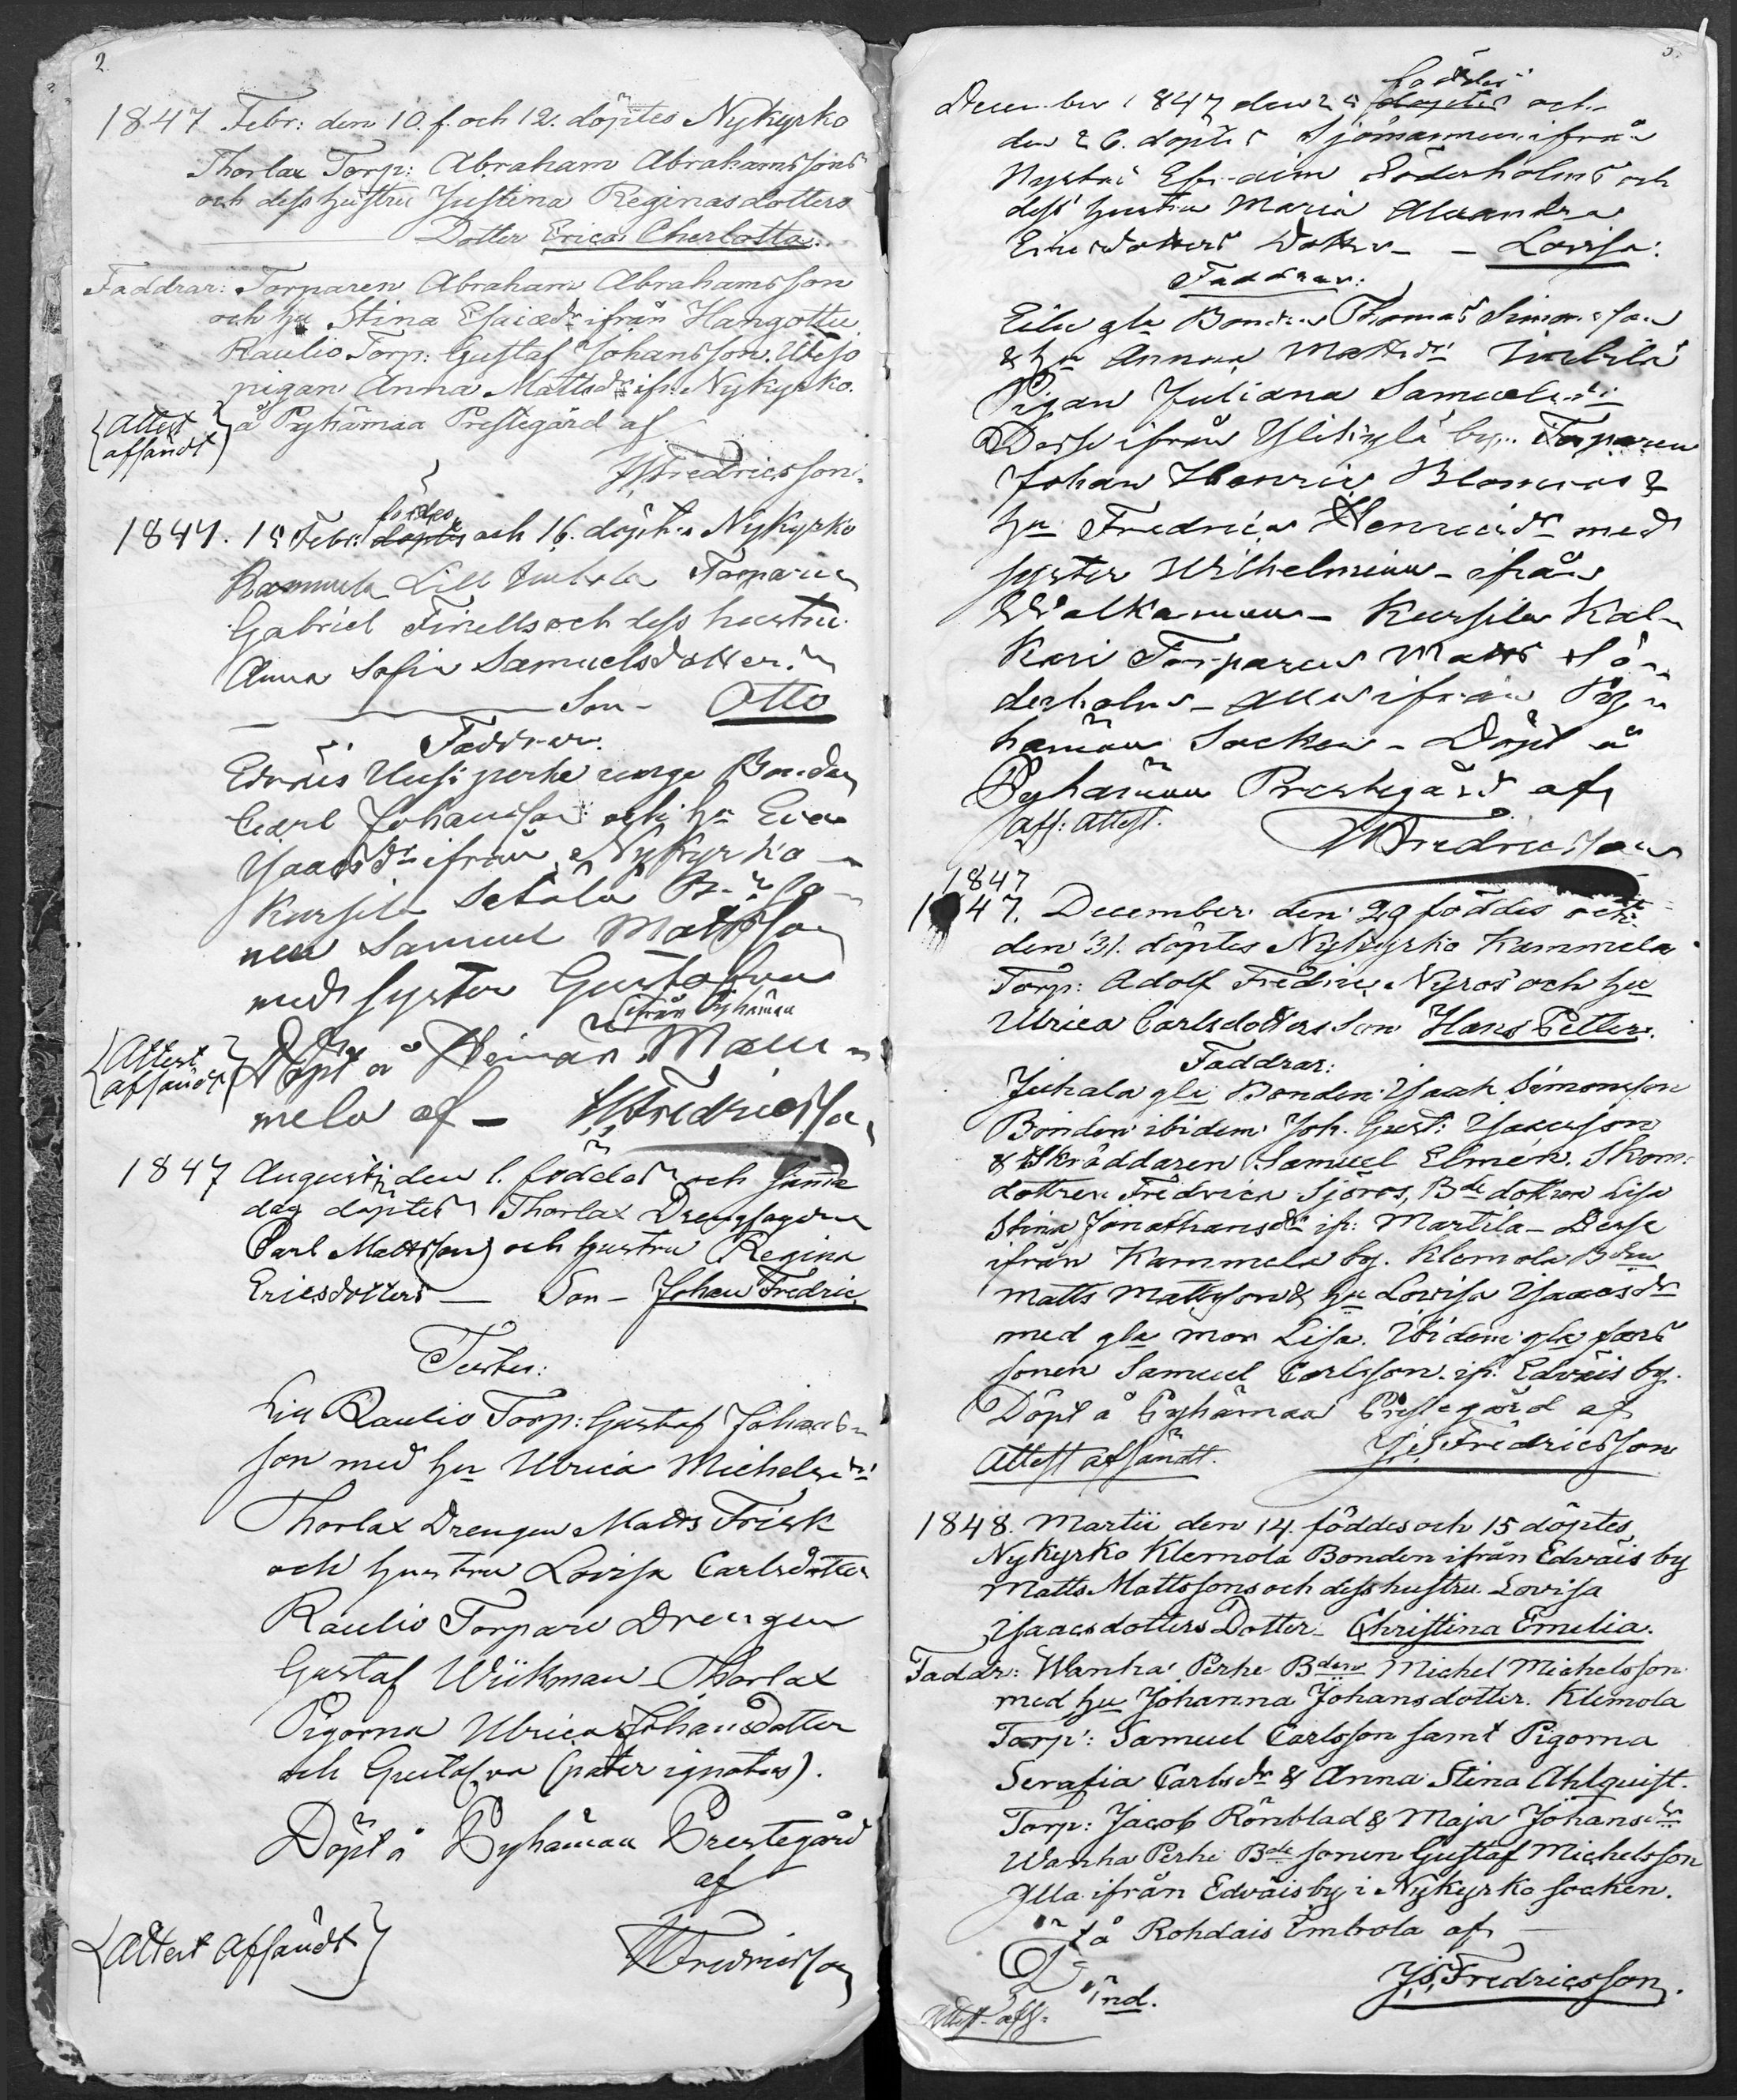 2.
1847 Febr: den 10. f. och 12. döptes Nykyrko
Thorlax Torp: Abraham Abrahamssons
och dess hustru Justina Reginasdotters
Dotter Erica Cherlotta.
Faddrar: Torparen Abraham Abrahamsson
och hu Stina Esaiædr ifrån Hangottu
Raulio Torp: Gustaf Johansson.
pigan Anna Mattsdr ifr. Nykyrko.
å Pyhämaa Prestegård af
{Attest afsändt}
JSFredricsson.
1847. 15 Febr: döptes föddes och 16. döptes Nykyrko
Kammela Lill Torparen
Gabriel Finells och dess hustru
Anna Sofia Samuelsdotters
Son - Otto
Faddrar.
Edväis Uusiperhe unge Bonden
Carl Johansson och hu Eva
Isaacsdr ifrån Nykyrko
Kursila Setälä
nen Samuel Mattsson
med syster Gustafva
ifrån Pyhämaa
Döpt å Heinäs Mau-
mela af - JSFredricsson
{Attest afsändt}
1847 Augusti den 1. föddes och samma
dag döptes Thorlax Drengkarlens
Carl Mattsson och hustru Regina
Ericsdotters — Son - Johan Fredric
Testes:
Raulio Torp: Gustaf Johans-
son med hu Ulrica Michelsdr
Thorlax Drengen Matts Frisk
och hustru Lovisa Carlsdotter
Raulio Torpare Drengen
Gustaf Wiikman - Thorlax
Pigorna Ulrica Johansdotter
och Gustafva (pater ignotus).
Döpt å Pyhämaa Prestegård
af
{Attest Afsändt}
JSFredricsson
3.
December 1847 den 25 döptes föddes och
den 26. döptes Sjömannen ifrån
Nystad Efraim Söderholms och
dess hustru Maria Alexandra
Ericsdotters Dotter - - Lovisa:
Faddrar:
Eilu gla Bonden Thomas Simonsson
& hu Anna Mattsdr
Pigan Juliana Samuelsdr
Desse ifrån Ylikylä by. Torparen
Johan Henric Blomros &
hu Fredrica Henricsdr med
syster Wilhelmina - ifrån
Walkamaa - Kursila Kal-
kari Torparen Matts Sö-
derholm - Alla ifrån Py-
hämaa Socken - Döpt å
Pyhämaa Prestegård af
Aff: attest.
JSFredricsson
1847
1847. December den 29 föddes och
den 31. döptes Nykyrko Kammela
Torp: Adolf Fredric Nyros och hu
Ulrica Carlsdotters Son Hans Petter.
Faddrar:
Juhala gla Bonden Isaak Simonsson
Bonden ibidem Joh. Gust: Isacsson
& Skräddaren Samuel Elmén. Skom:
dottren Fredrica Sjöros, Bde dottren Lisa
Stina Jonathansdr ifr: Martila - Desse
ifrån Kammela by. Klemola Bden
Matts Mattsson & hu Lovisa Isaacsdr
med gla mor Lisa. Ibidem gla fars
sonen Samuel Carlsson. ifr: Edväis by.
Döpt å Pyhämaa Prestegård af
Attest afsändt.
J.S.Fredricsson
1848. Martii den 14. föddes och 15 döptes
Nykyrko Klemola Bonden ifrån Edväis by
Matts Mattssons och dess hustru Lovisa
Isaacsdotters Dotter - Christina Emelia.
Faddr: Wanha Perhe Bden Michel Michelsson
med hu Johanna Johansdotter. Klemola
Torp: Samuel Carlsson samt Pigorna
Serafia Carlsdr & Anna Stina Ahlquist.
Torp: Jacob Rönblad & Maja Johansdr
Wanha Perhe Bde sonen Gustaf Michelsson
Alla ifrån Edväisby i Nykyrko socken.
Döpt å Rohdais Embrola af
J.S.Fredricsson.
Attest afs: